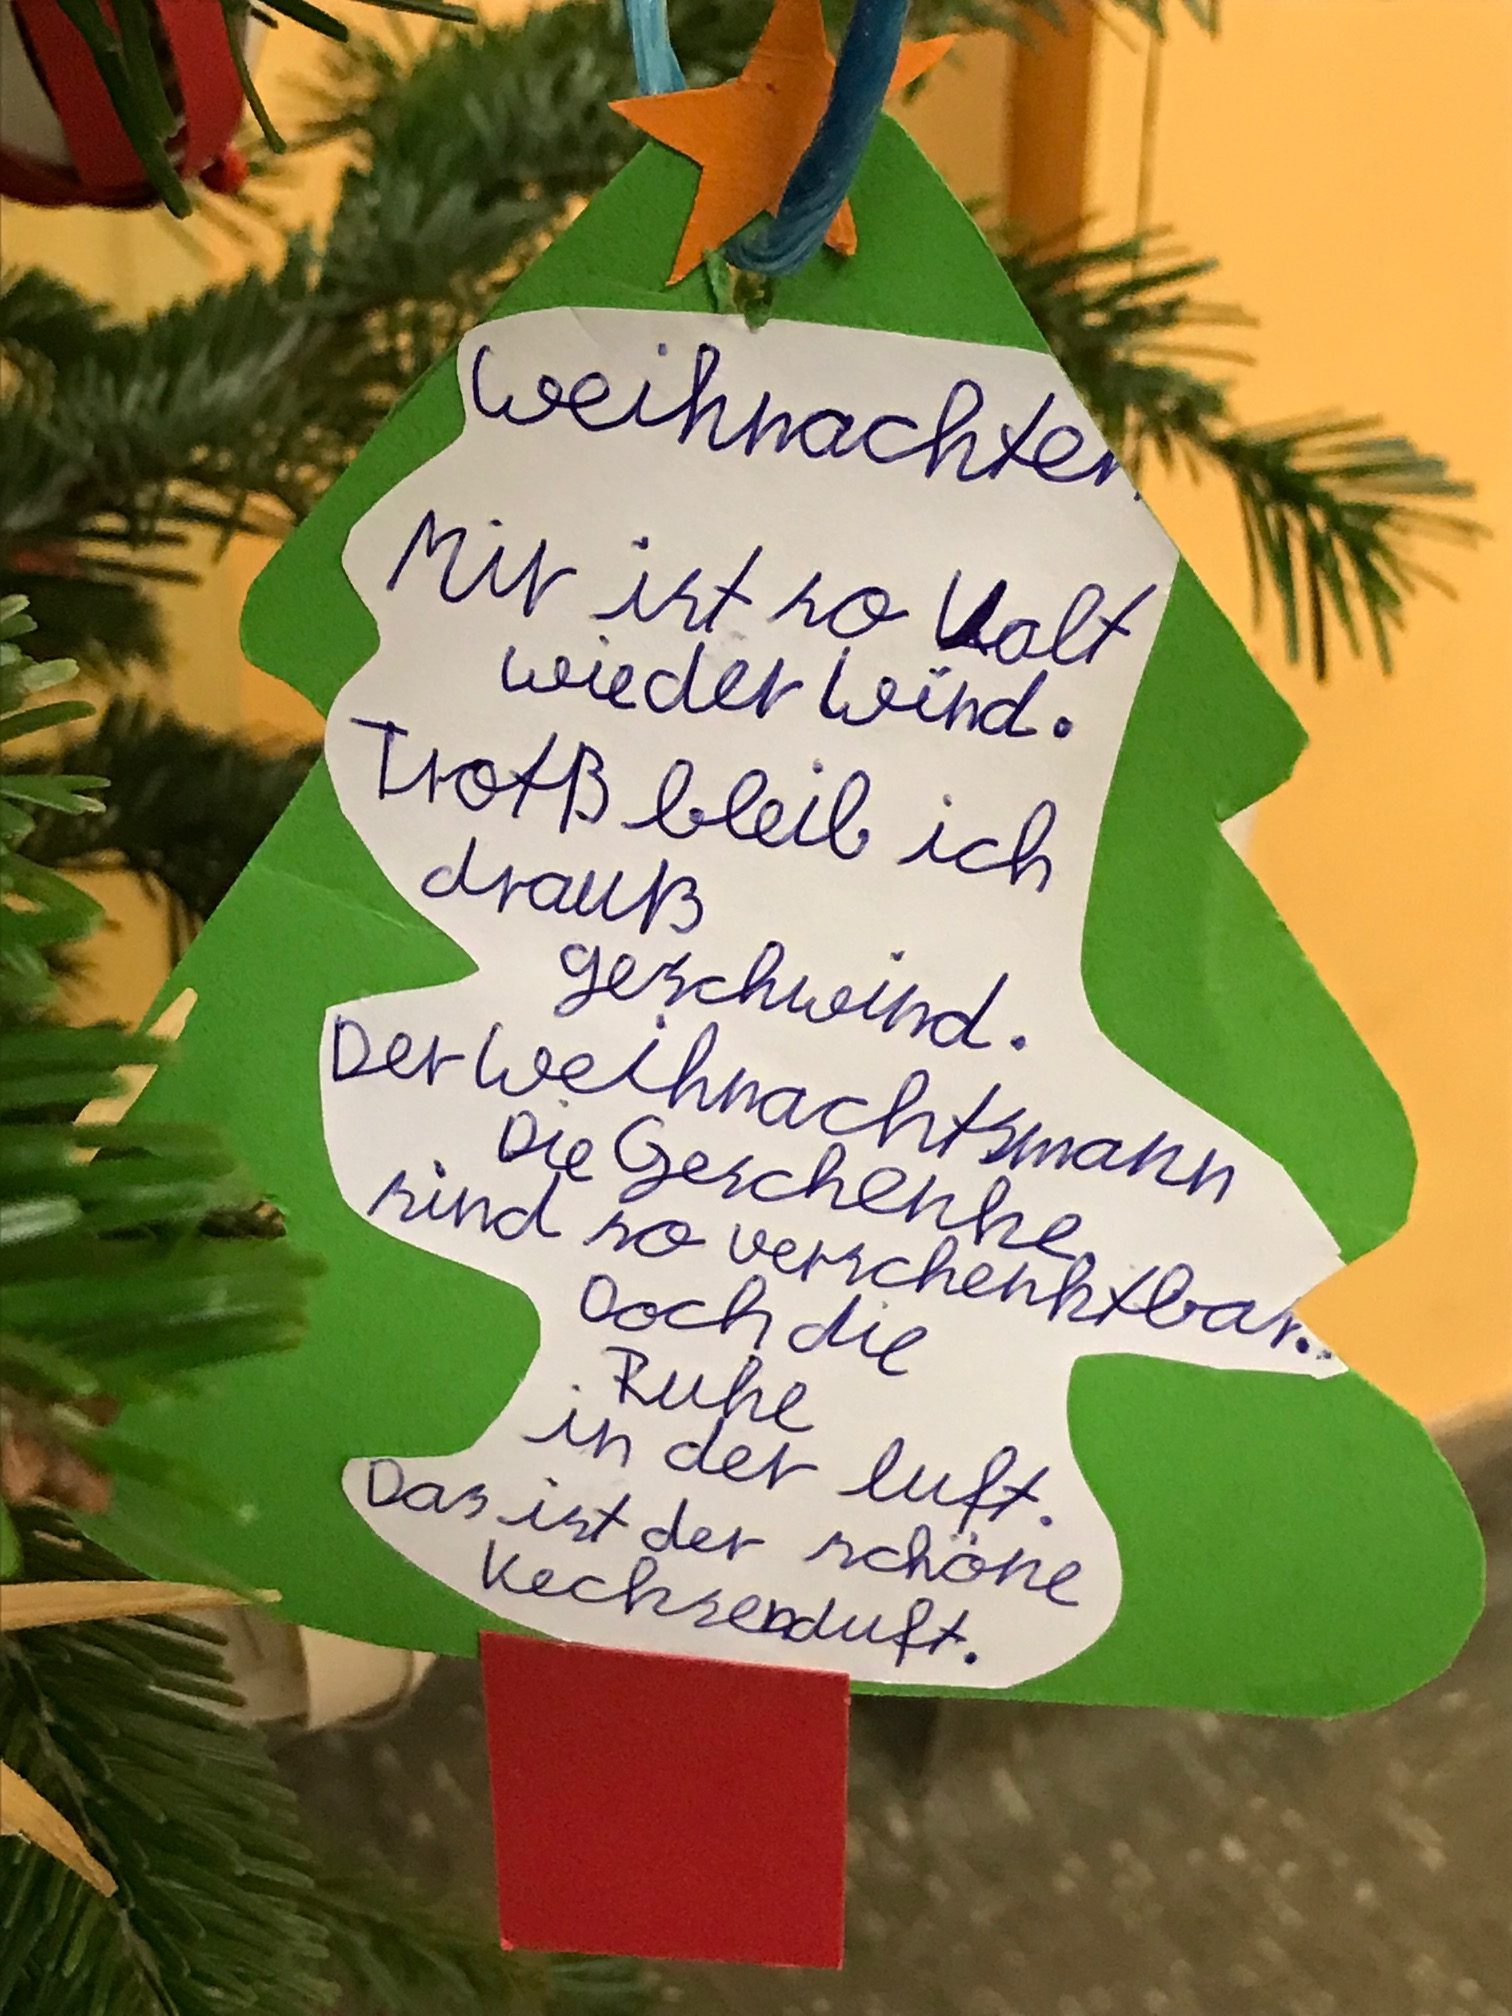 Weihnachten
Mir ist so kalt
wieder Wind.
Trotß bleib ich
drauß
geschwind.
Der Weihnachtsmann
Die Geschenke
sind so verschenktbar.
Doch die
Ruhe
in der luft.
Das ist der schöne
Kecksenduft.